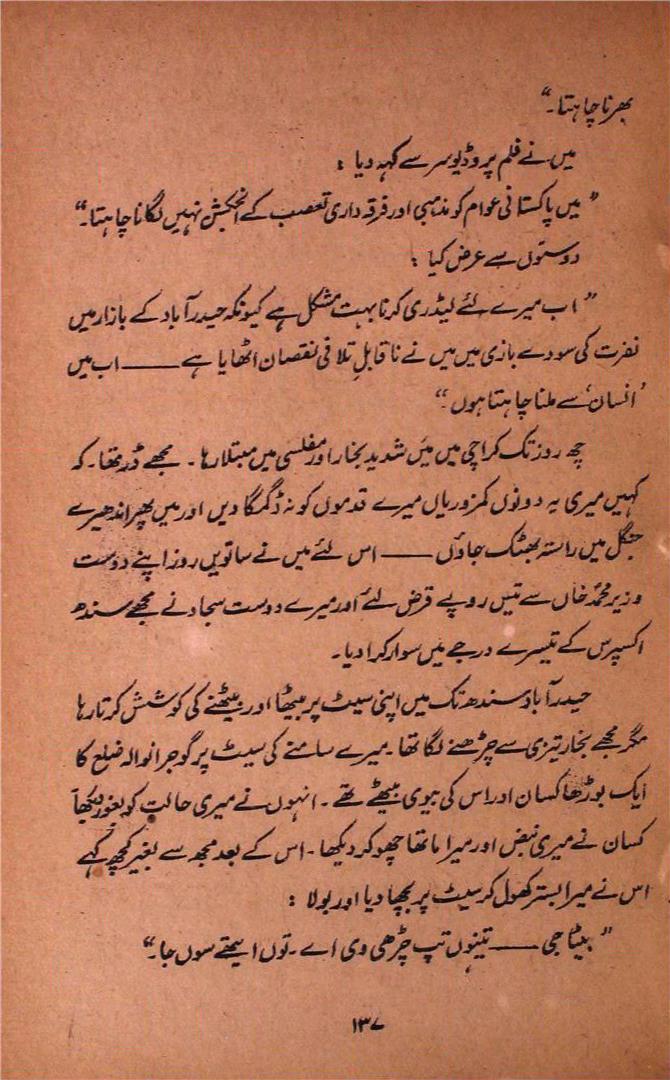 بھرنا چاہتا۔“
میں نے فلم پروڈیوسر سے کہہ دیا :
” میں پاکستانی عوام کو مذہبی اور فرقہ داری تعصب کے انجکشن نہیں لگانا چاہتا۔“
دوستوں سے عرض کیا :
” اب میرے لئے لیڈری کرنا بہت مشکل ہے کیونکہ حیدر آباد کے بازار میں
نفرت کی سودے بازی میں میں نے ناقابلِ تلافی نقصان اٹھایا ہے ــــــ اب میں
’انسان‘ سے ملنا چاہتا ہوں “
چھ روز تک کراچی میں میَں شدید بخار اور مفلسی میں مبتلا رہا ۔ مجھے ڈر تھا۔ کہ
کہیں میری یہ دونوں کمزوریاں میرے قدموں کو نہ ڈگمگا دیں اور میں پھر اندھیرے
جنگل میں راستہ بھٹک جاؤں ــــــ اس لئے میں نے ساتویں روز اپنے دوست
وزیر محمد خاں سے تیس روپے قرض لئے اور میرے دوست سجاد نے مجھے سندھ
اکسپرس کے تیسرے درجے میں سوار کرا دیا۔
حیدر آباد سندھ تک میں اپنی سیٹ پر بیٹھا اور بیٹھنے کی کوشش کرتا رہا
مگر مجھے بخار تیزی سے چڑھنے لگا تھا۔ میرے سامنے کی سیٹ پر گوجرانوالہ ضلع کا
ایک بوڑھا کسان اور اس کی بیوی بیٹھے تھے ۔ انہوں نے میری حالت کو بغور دیکھا
کسان نے میری نبض اور میرا ماتھا چھو کر دیکھا ۔ اس کے بعد مجھ سے بغیر کچھ کہے
اس نے میرا بستر کھول کر سیٹ پر بچھا دیا اور بولا :
” بیٹا جی ــــــ تینوں تپ چڑھی وی اے ۔ توں ایتھے سوں جا۔“
۱۳۷